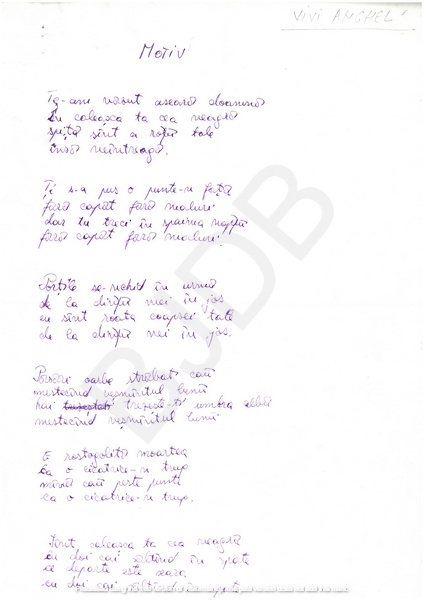 VIVI ANGHEL
MOTIV
Te-am văzut aseară doamnă
în caleașca ta cea neagră
spiță sînt a roții tale
însă neîntreagă.
Ți s-a pus o punte-n față
fără capăt fără maluri
dar tu treci în spaima nopții
fără capăt fără maluri.
Porțile se-nchid în urmă
de la dinții mei în jos
eu sînt roata coapsei tale
de la dinții mei în jos.
Păsări oarbe străbat caii
mestecînd nesfîrșitul lumii
hai trezește-ți umbra albă
mestecînd nesfîrșitul lumii
E rostogolită moartea
ca o cicatrice-n trup
mînă caii peste punte
ca o cicatrice-n trup.
Sînt caleașca ta cea neagră
cu doi cai săltînd în spate
ce departe este seara
cu doi cai săltînd în spate
BJDB